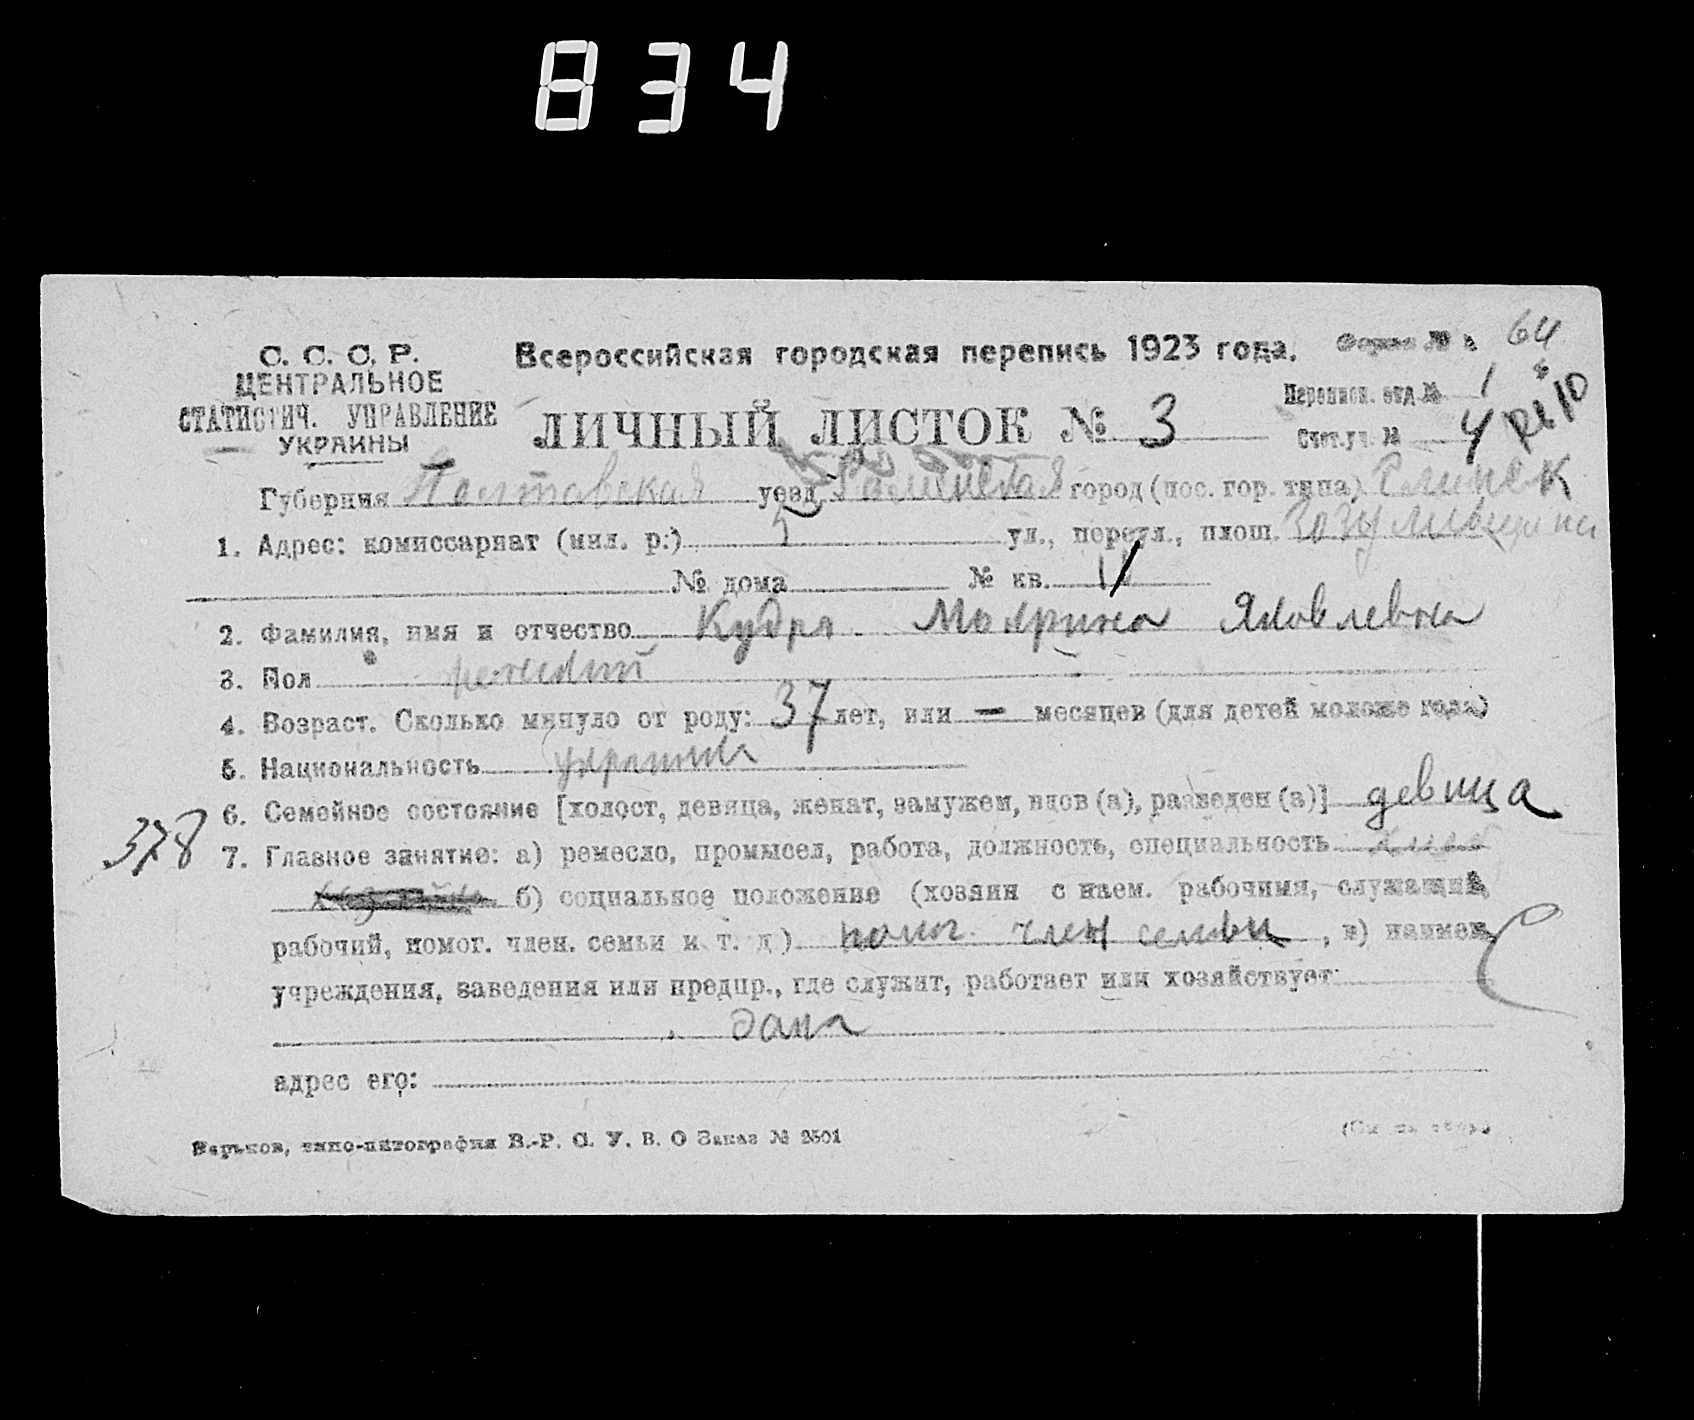 834
С. С. С. Р.
ЦЕНТРАЛЬНОЕ
СТАТИСТИЧ. УПРАВЛЕНИЕ
УКРАИНЫ
Всероссийская городская перепись 1923 года.
Форма № 64
ЛИЧНЫЙ ЛИСТОК № 3
Переписн. отд. № 1
Счет.уч. № 4
Губерния Полтавская уезд город (пос. гор. типа)
1. Адрес: комиссариат (мил. р.) 5 ул., переул., площ.
№ дома № кв.
2. Фамилия, имя и отчество Кудря Моярина Яковлевна
3. Пол женский
4. Возраст. Сколько минуло от роду: 37 лет, или — месяцев (для детей моложе года)
5. Национальность
6. Семейное состояние [холост, девица, женат, замужем, вдов (а), разведен (а)] девица
378
7. Главное занятие: а) ремесло, промысел, работа, должность, специальность
б) социальное положение (хозяин с наем. рабочими, служащий,
рабочий, помог. член. семьи и т. д.) помог. член семьи, в) наимен.
учреждения, заведения или предпр., где служит, работает или хозяйствует:
адрес его:
Харьков, типо-литография В.-Р. С. У. В. О Заказ № 2501